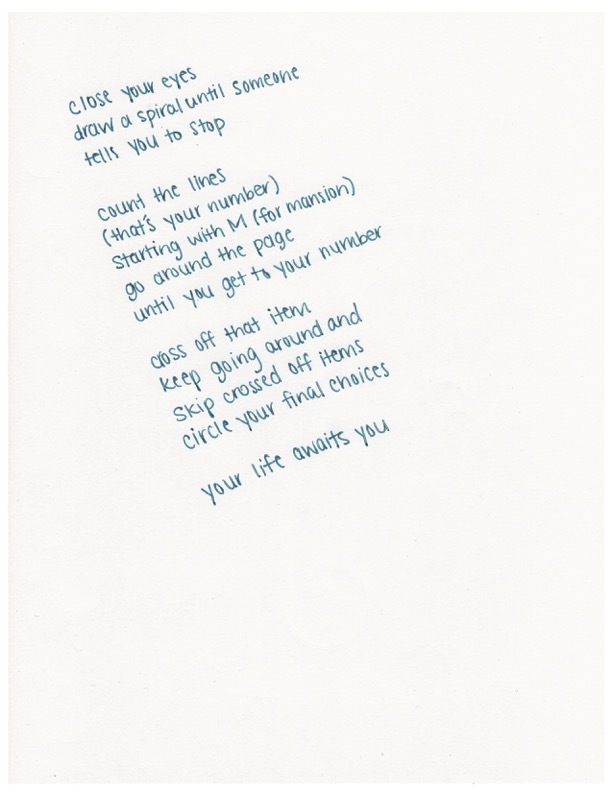 close your eyes
draw a spiral until someone
tells you to stop
count the lines
(that's your number)
starting with M (for mansion)
go around the page
until you get to your number
cross off that item
keep going around and
skip crossed off items
circle your final choices
your life awaits you